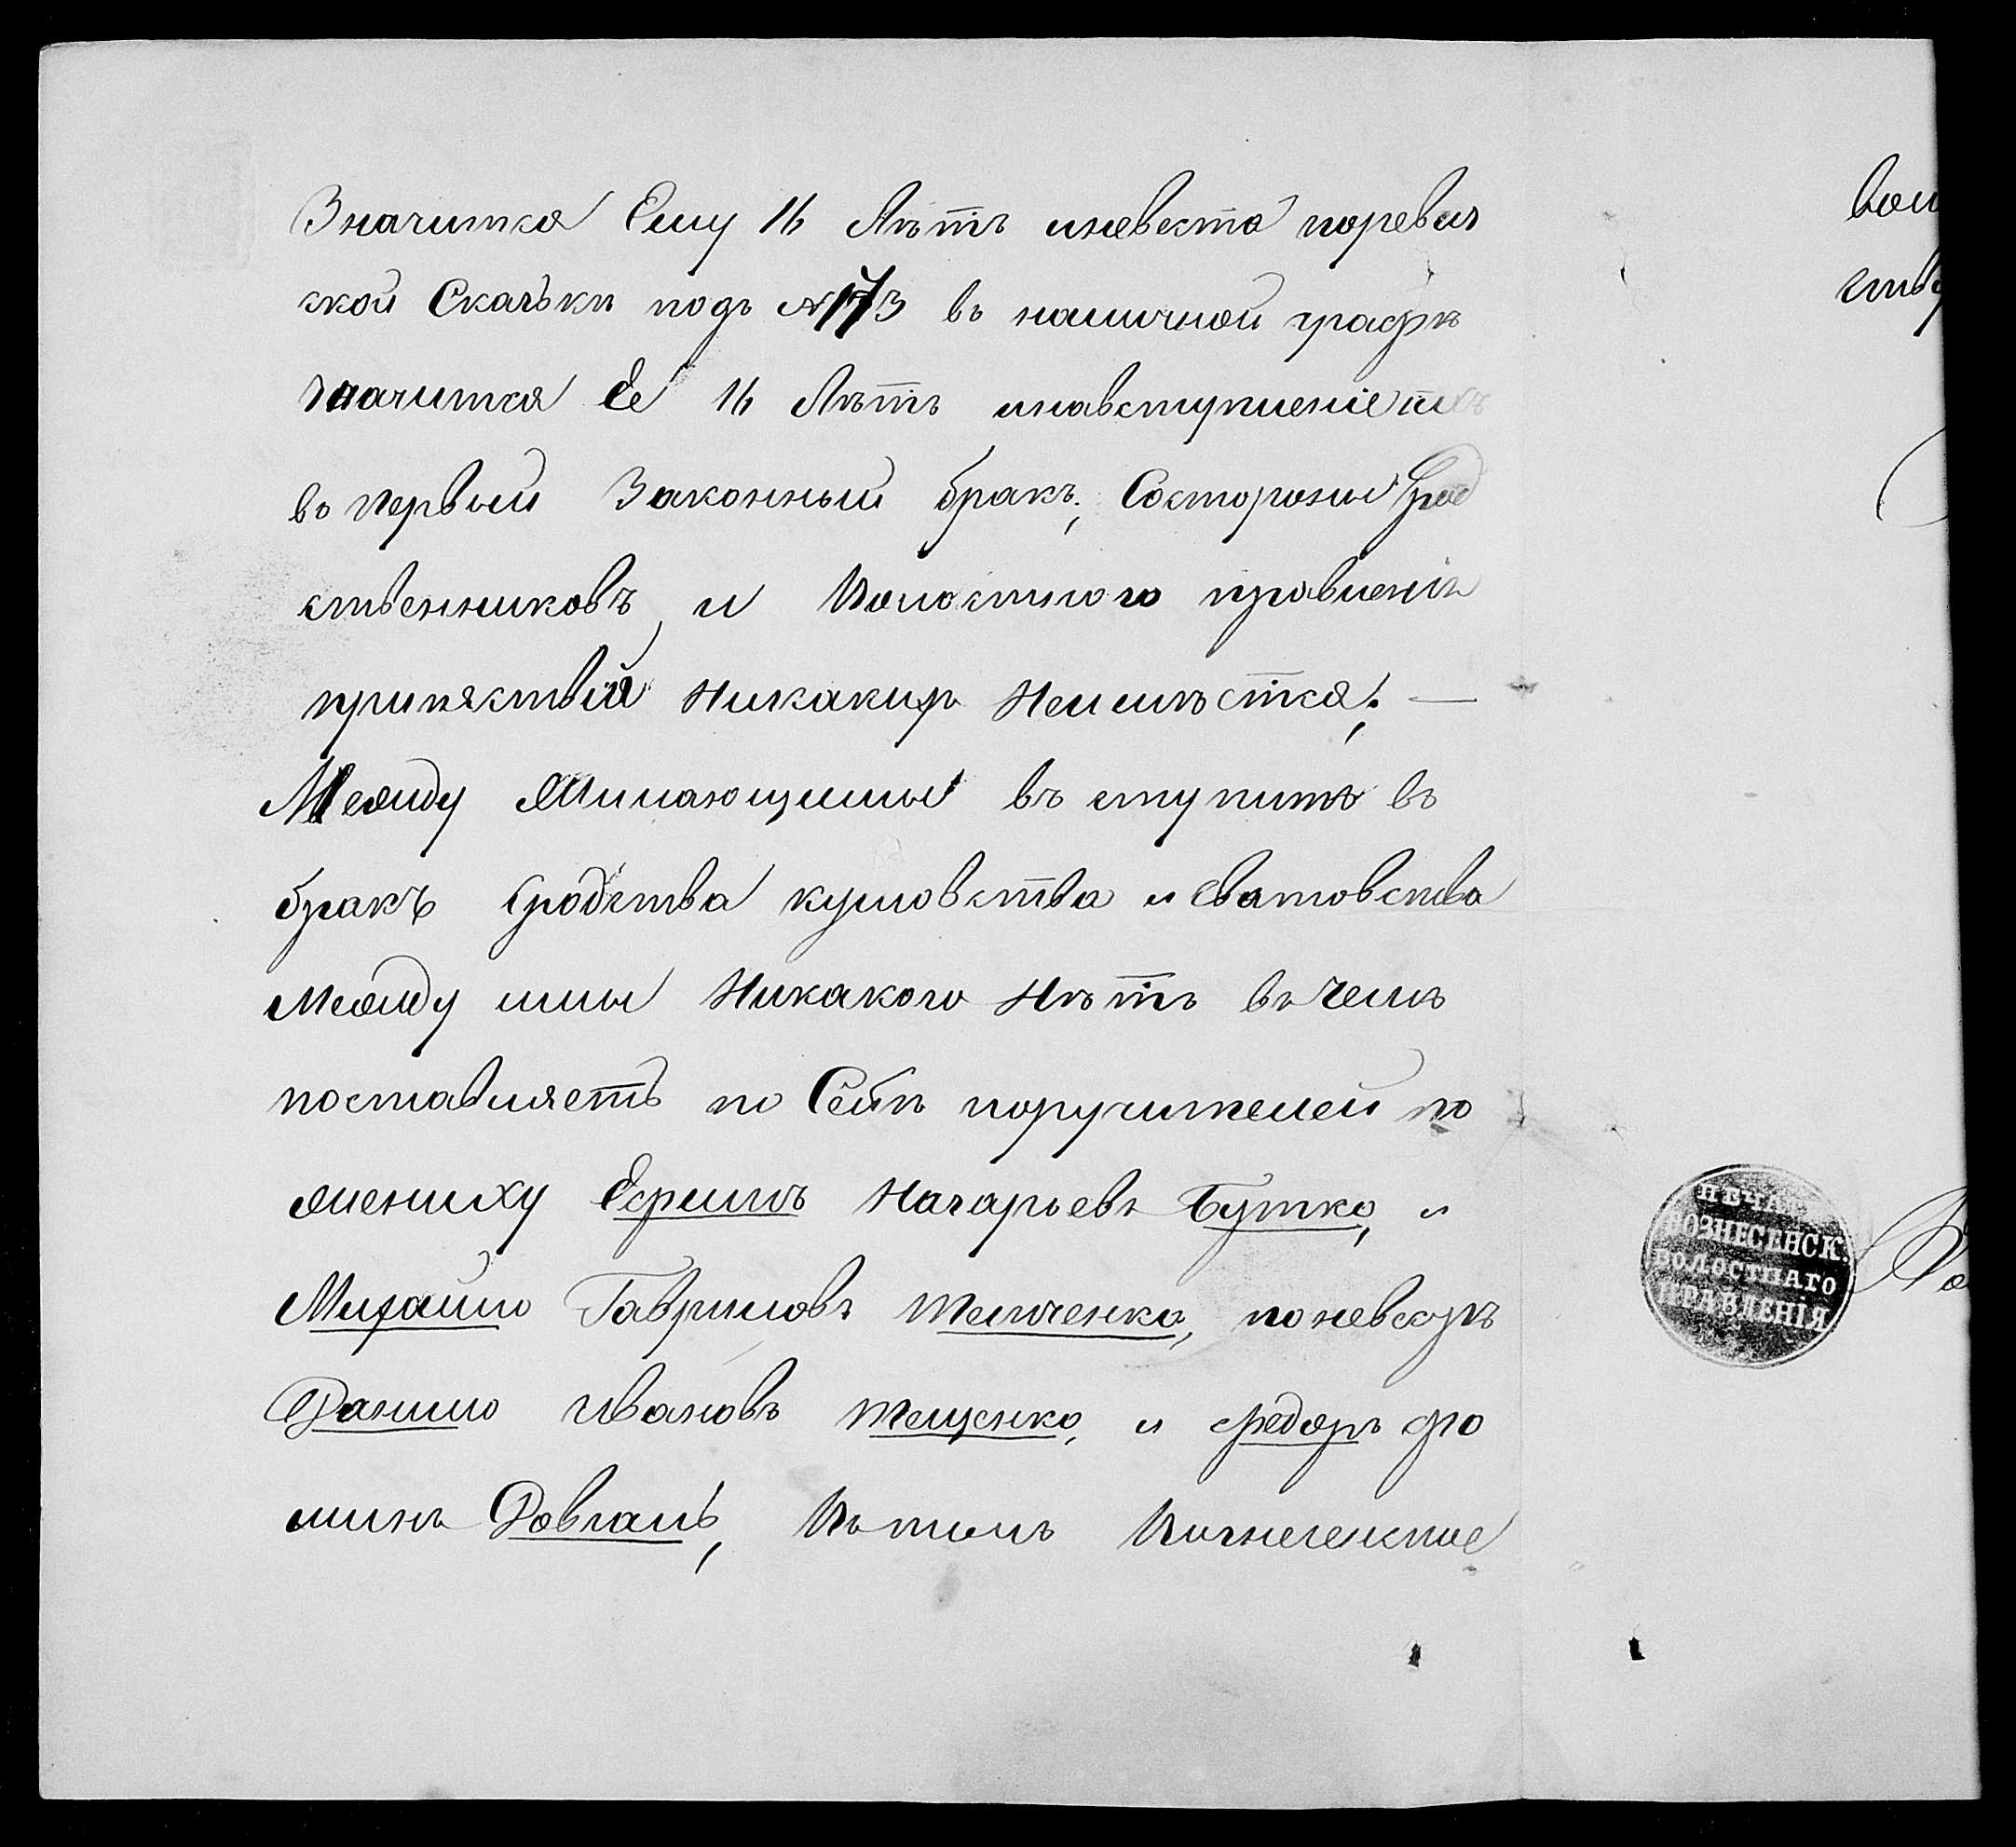 Значитса Ему 16 Лѣтъ иневеста поревиз
ской Скаськи подъ №173 въ наличной графѣ
значитса Ее 16 Лѣтъ инавступленіе ихъ
въ первый Законный бракъ, Состороны Срод
ственниковъ и Волостного правленія
припяствій Никакихъ Неимѣется; —
Между Жилающими въ ступить въ
бракъ Сродства кумовства и Сватовства
Между ими Никакого Нѣтъ въ чемъ
поставляетъ по Себѣ поручителей по
жениху Ефимъ Назарьевъ Бутко, и
Михайло Гавриловъ Темченко, поневестѣ
Данило Ивановъ Тещенко, и Федоръ Фо
минъ Довгаль, Въ томъ Вознесенское
вол
ств
ПЕЧАТЬ
ВОЗНЕСЕНСК.
ВОЛОСТНАГО
ПРАВЛЕНІЯ
Во